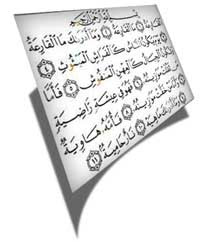 بِسْمِ اللَّهِ الرَّحْمَٰنِ الرَّحِيمِ
الْقَارِعَةُ ١ مَا الْقَارِعَةُ ٢ وَمَا أَدْرَاكَ مَا الْقَارِعَةُ
٣ يَوْمَ يَكُونُ النَّاسُ كَالْفَرَاشِ الْمَبْثُوثِ ٤
وَتَكُونُ الْجِبَالُ كَالْعِهْنِ الْمَنْفُوشِ ٥ فَأَمَّا
مَنْ ثَقُلَتْ مَوَازِينُهُ ٦ فَهُوَ فِي عِيشَةٍ رَاضِيَةٍ
٧ وَأَمَّا مَنْ خَفَّتْ مَوَازِينُهُ ٨ فَأُمُّهُ هَاوِيَةٌ
٩ وَمَا أَدْرَاكَ مَا هِيَهْ ١٠ نَارٌ حَامِيَةٌ ١١